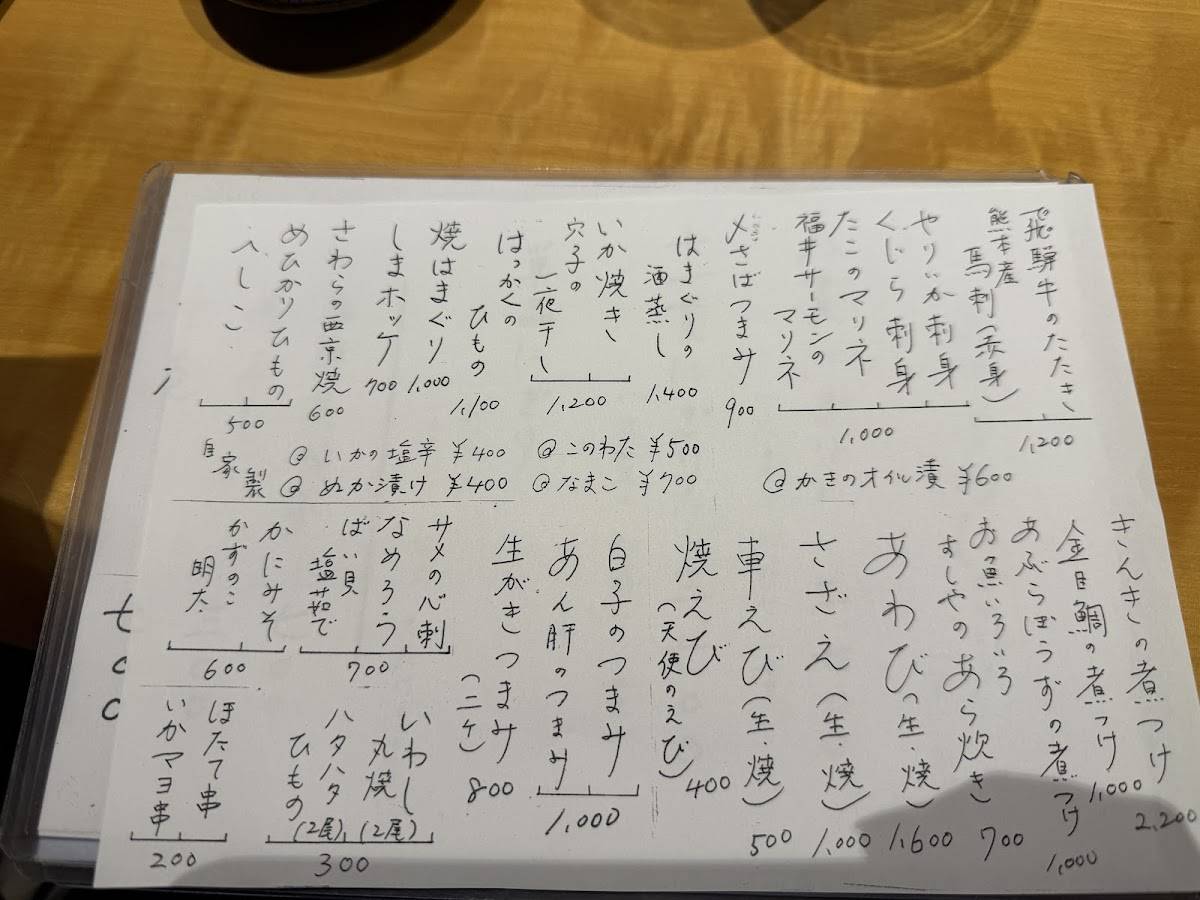 飛騨牛のたたき
熊本産
馬刺(赤身)
1,200
やりいか刺身
くじら刺身
たこのマリネ
福井サーモンの
マリネ
1,000
〆さばつまみ
900
はまぐりの
酒蒸し
1,400
いか焼き
穴子の
一夜干し
1,200
はっかくの
ひもの
1,100
焼はまぐり
1,000
しまホッケ
700
さわらの西京焼
600
めひかりひもの
へしこ
500
自家製
@いかの塩辛 ¥400
@このわた ¥500
@ぬか漬け ¥400
@なまこ ¥700
@かきのオイル漬 ¥600
きんきの煮つけ
2,200
金目鯛の煮つけ
1,000
あぶらぼうずの煮つけ
1,000
お魚いろいろ
すしやのあら炊き
700
あわび(生・焼)
1,600
さざえ(生・焼)
1,000
車えび(生・焼)
500
焼えび
(天使のえび)
400
白子のつまみ
あん肝のつまみ
1,000
生がきつまみ
(二ケ)
800
サメの心刺
なめろう
ばい貝
塩茹で
700
かにみそ
かずのこ
明太
600
いわし
丸焼
(2尾)
ハタハタ
ひもの
(2尾)
300
ほたて串
いかマヨ串
200